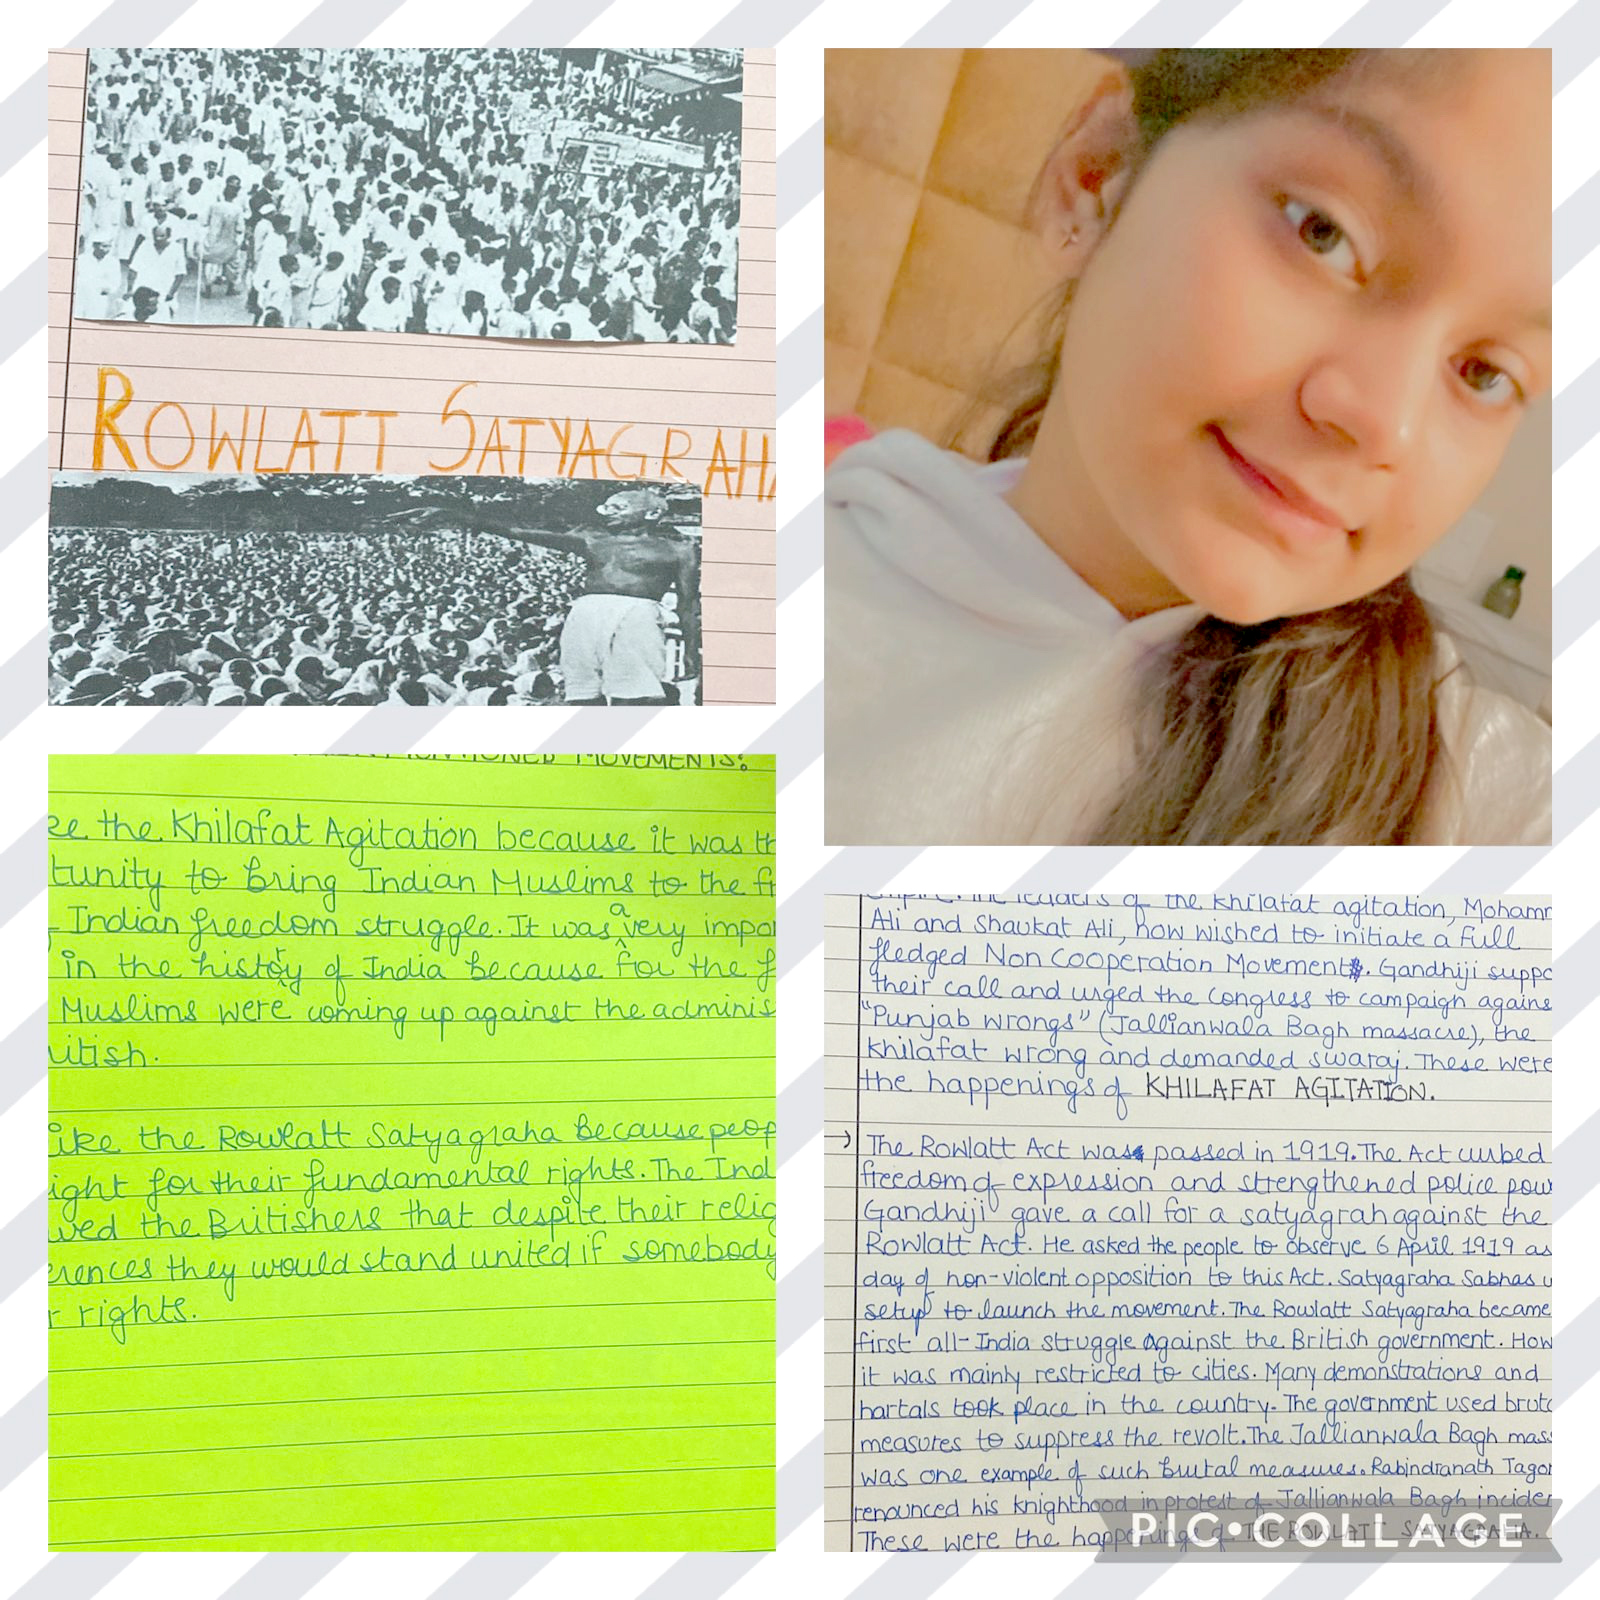 ROWLATT SATYAGRAHA
MOVEMENTS?
the Khilafat Agitation because it was
to bring Indian Muslims to the
Indian freedom struggle. It was a very
in the history of India because for the
Muslims were coming up against the
the Rowlatt Satyagraha because
for their fundamental rights. The
the Britishers that despite their
they would stand united if somebody
rights.
the Khilafat agitation,
Ali and Shaukat Ali, now wished to initiate a full
fledged Non Cooperation Movement. Gandhiji
their call and urged the Congress to campaign
"Punjab wrongs" (Jallianwala Bagh massacre), the
Khilafat wrong and demanded swaraj. These were
the happenings of KHILAFAT AGITATION.
→) The Rowlatt Act was passed in 1919. The Act curbed
freedom of expression and strengthened police
Gandhiji gave a call for a satyagrah against the
Rowlatt Act. He asked the people to observe 6 April 1919 as
day of non-violent opposition to this Act. Satyagraha Sabhas
setup to launch the movement. The Rowlatt Satyagraha became
first all-India struggle against the British government.
it was mainly restricted to cities. Many demonstrations and
hartals took place in the country. The government used
measures to suppress the revolt. The Jallianwala Bagh
was one example of such brutal measures. Rabindranath
renounced his knighthood in protest of Jallianwala Bagh
These were the happenings of THE ROWLATT SATYAGRAHA.
PIC•COLLAGE